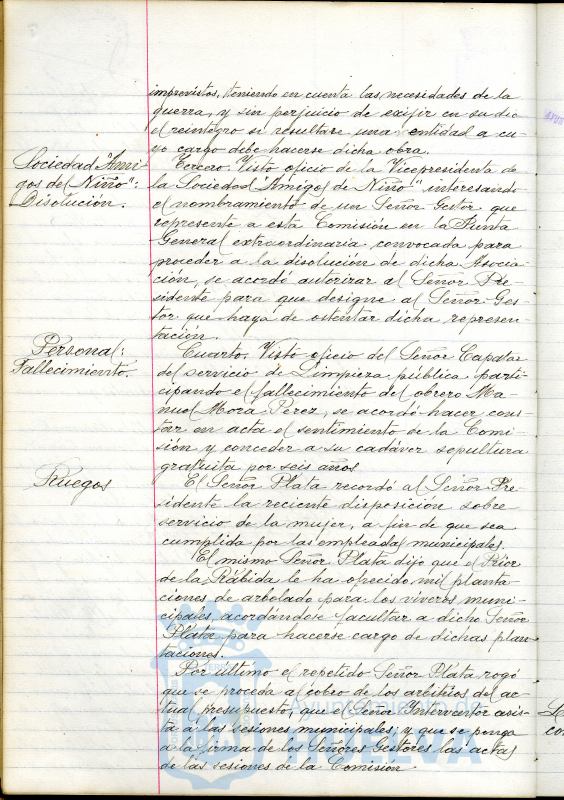 imprevistos, teniendo en cuenta las necesidades de la
guerra, y sin perjuicio de exijir en su dia
el reintegro si resultase una entidad a cu-
yo cargo debe hacerse dicha obra.
Sociedad "Ami-
gos del Niño":
Disolución.
Tercero. Visto oficio de la Vicepresidenta de
la Sociedad "Amigos de Niño" interesando
el nombramiento de un Señor Gestor que
represente a esta Comisión en la Junta
General extraordinaria convocada para
proceder a la disolución de dicha Asocia-
ción, se acordó autorizar al Señor Pre-
sidente para que designe al Señor Ges-
tor que haya de ostentar dicha represen-
tación.
Personal:
Fallecimiento.
Cuarto. Visto oficio del Señor Capataz
del servicio de Limpieza pública parti-
cipando el fallecimiento del obrero Ma-
nuel Mora Perez, se acordó hacer cons-
tar en acta el sentimiento de la Comi-
sión y conceder a su cadáver sepultura
gratuita por seis años
Ruegos
El Señor Plata recordó al Señor Pre-
sidente la reciente disposición sobre
servicio de la mujer, a fin de que sea
cumplida por las empleadas municipales.
El mismo Señor Plata dijo que el Prior
de la Rábida le ha ofrecido mil planta-
ciones de arbolado para los viveros muni-
cipales, acordándose facultar a dicho Señor
Plata para hacerse cargo de dichas plan-
taciones.
Por último el repetido Señor Plata rogó
que se proceda al cobro de los arbitrios del ac-
tual presupuesto, que el Señor Interventor asis-
ta a las sesiones municipales; y que se ponga
a la firma de los Señores Gestores las actas
de las sesiones de la Comisión
Ayuntamiento de
HUELVA